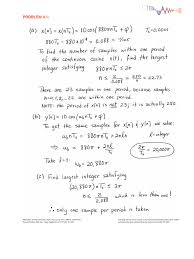 PROBLEM 4.1:
(a) x[n] = x(nTs) = 10 cos(880πnTs + φ) Ts = 0.0001
880πTs = 880π×10⁻⁴ = 0.088π
To find the number of samples within one period
of the continuous cosine x(t), find the largest
integer satisfying 880πnTs ≤ 2π
n ≤ 2/0.088 = 22.73
There are 23 samples in one period, because samples
are within one period.
NOTE: the period of x[n] is not 23; it is actually 250
(b) y[n] = 10 cos(ω₀nTs + φ)
To get the same samples for x[n] & y[n] we solve:
ω₀nTs = 880πnTs + 2πkn k=integer
ω₀ = 880π + 2πk/Ts
Take k=1. ω₀ = 20,880π
(c) Find largest integer satisfying
(20,880π)nTs ≤ 2π
n ≤ 2/2.088 which is less than one!
∴ only one sample per period is taken